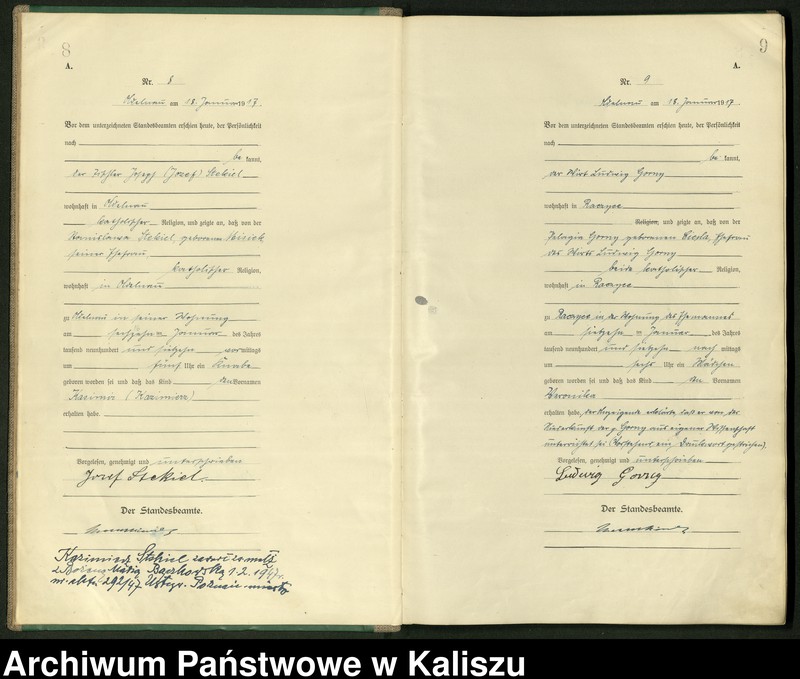 8
A.
Nr. 8
Adelnau am 18. Januar 1917.
Vor dem unterzeichneten Standesbeamten erschien heute, der Persönlichkeit
nach
be kannt,
der Tischler Joseph (Jozef) Stekiel
wohnhaft in Adelnau
katholischer Religion, und zeigte an, daß von der
Stanislawa Stekiel, geborenen
seiner Ehefrau
katholischer Religion,
wohnhaft in Adelnau
zu Adelnau in seiner Wohnung
am sechzehn ten Januar des Jahres
tausend neunhundert und siebzehn vormittags
um fünf Uhr ein Knabe
geboren worden sei und daß das Kind den Vornamen
Kazimir (Kazimierz)
erhalten habe.
Vorgelesen, genehmigt und unterschrieben
Jozef Stekiel.
Der Standesbeamte.
Kazimierz Stekiel zawarł zw. małż.
z Bożeną Marią Bączkowską 1.2.1947 r.
nr aktu 292/47 Urz. st. cyw. Poznań-miasto
9
A.
Nr. 9
Adelnau am 18. Januar 1917
Vor dem unterzeichneten Standesbeamten erschien heute, der Persönlichkeit
nach
be kannt,
der Wirt Ludwig Gorny
wohnhaft in Raczyce
Religion, und zeigte an, daß von der
Pelagia Gorny geborenen Ciesla, Ehefrau
des Wirts Ludwig Gorny
beide katholischer Religion,
wohnhaft in Raczyce
zu Raczyce in der Wohnung des Ehemannes
am siebzehn ten Januar des Jahres
tausend neunhundert und siebzehn nach mittags
um sechs Uhr ein Mädchen
geboren worden sei und daß das Kind den Vornamen
Veronika
erhalten habe, der Anzeigende erklärte, daß er von der
Niederkunft der p. Gorny aus eigener Wissenschaft
unterrichtet sei (Vorstehend ein Druckwort gestrichen).
Vorgelesen, genehmigt und unterschrieben
Ludwig Gorny
Der Standesbeamte.
Archiwum Państwowe w Kaliszu